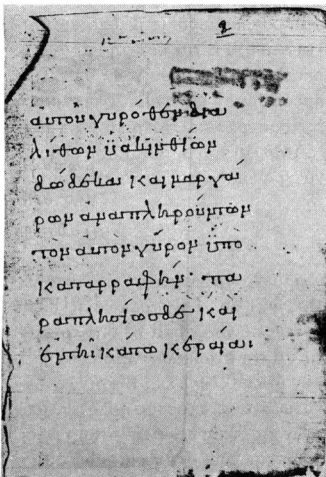 2
αυτοῦ γυρόθεν δια
λίθων ϋακινθίων
δώδεκα καὶ μαργά
ρων ἀναπληρούντων
τὸν αυτὸν γῦρον ὑπὸ
καταρραφήν· πα
ραπλησίως δὲ καὶ
ἐν τῆι κάτω κεραίαι